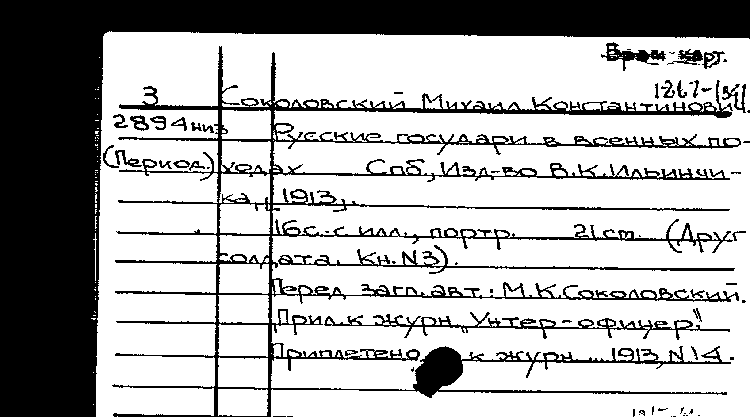 Врем карт.
1867-
3 Соколовский Михаил Константинович.
2894 низ Русские государи в военных по-
(Период.) ходах Спб., Изд-во В.К.Ильинчи-
ка, [1913].
16с. с илл., портр. 21 см. (Друг
солдата. Кн. N3).
Перед загл. авт.: М.К.Соколовский.
Прил. к журн. "Унтер-офицер".
Приплетено к журн. ... 1913, N14.